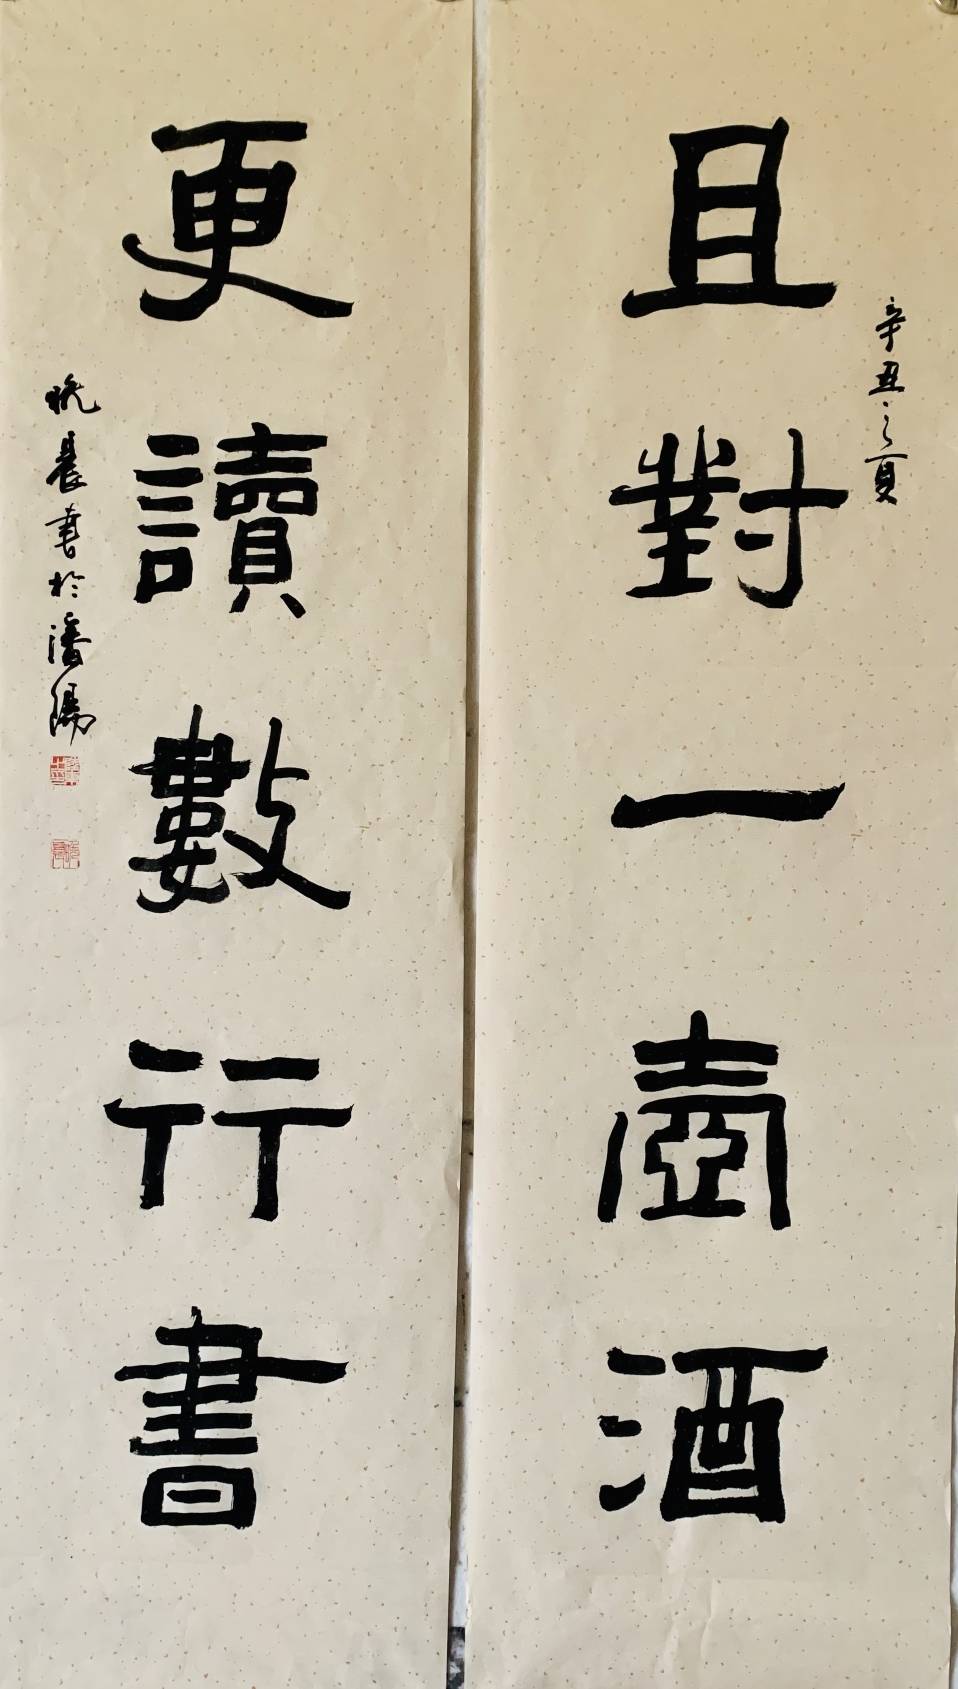 辛丑之夏
且對一壺酒
更讀數行書
晨書於瀋陽